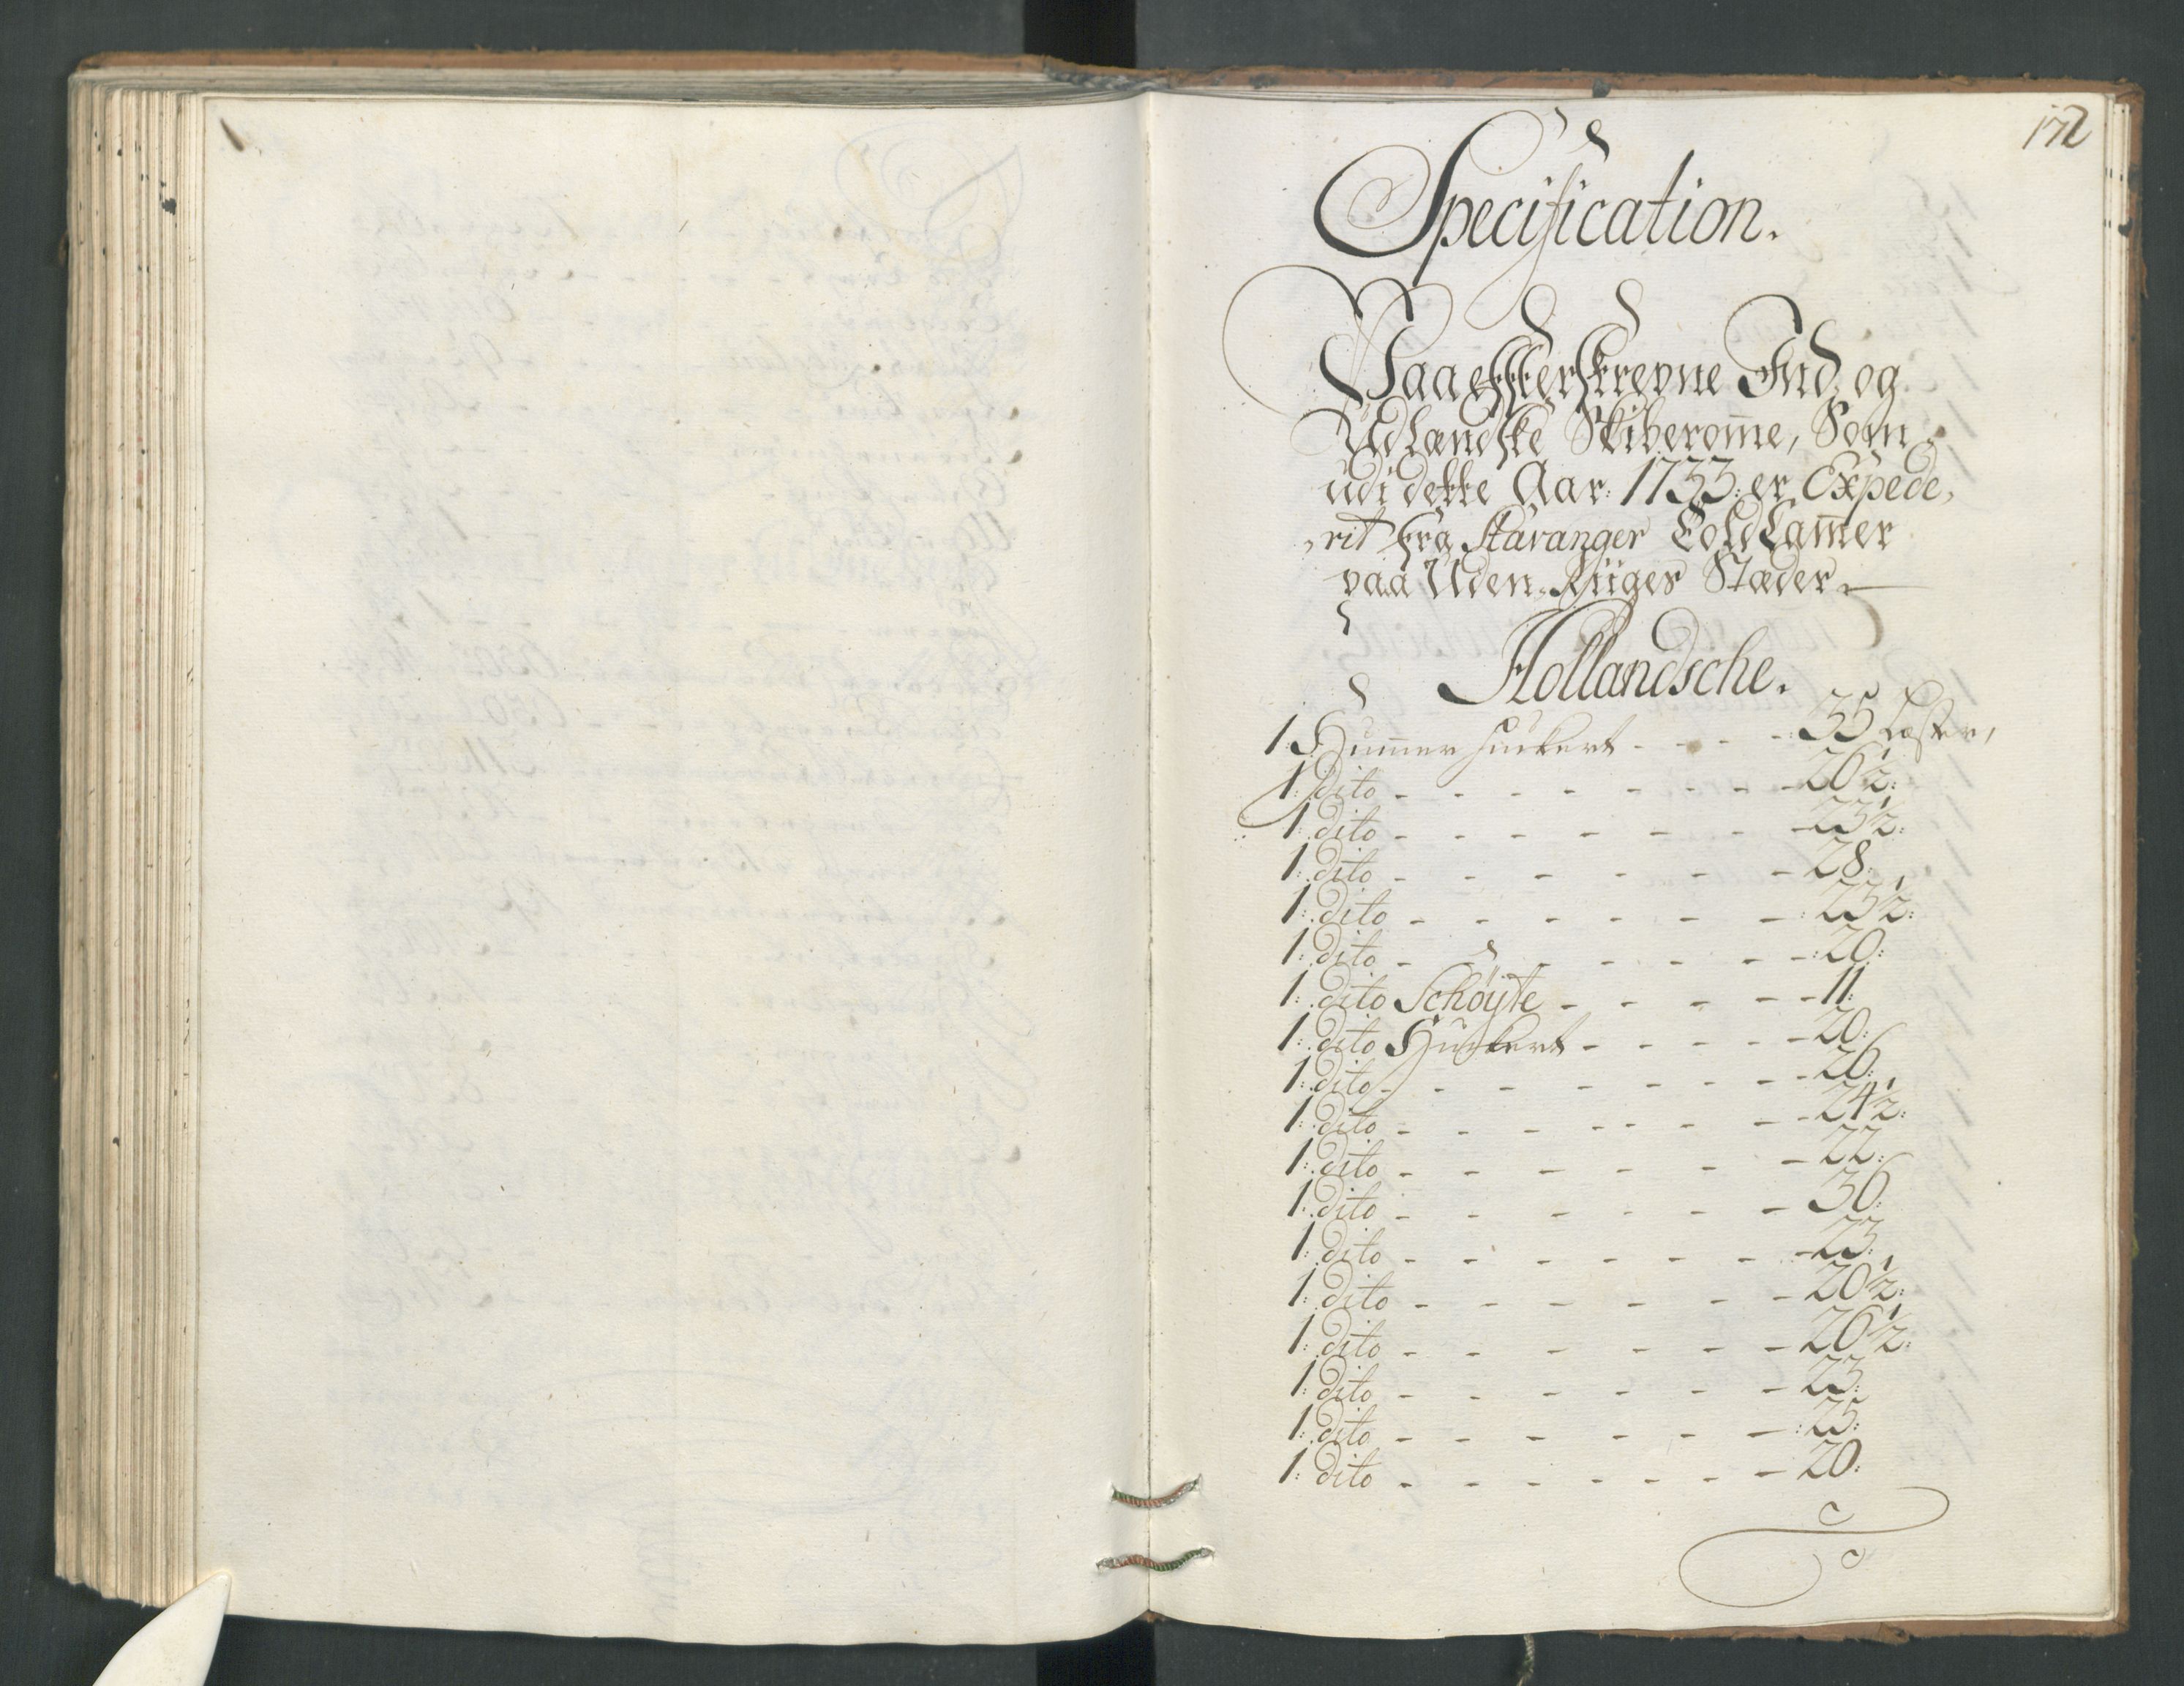 172
Specification.
Paa effterskrevne Ind, og
Udlændske Skiberom̅e, Som
udi dette Aar: 1733: er Expede,
,rit fra Stavanger Told Cam̅er
paa Uden. Riiges Stæder.
Hollandsche.
1: Hum̅er Huckert - - - - 35 Læster,
1: dito - - - - - - - - 26½:
1: dito - - - - - - - 23½:
1: dito - - - - - - - 28:
1: dito - - - - - - -: 23½:
1: dito - - - - - - -: 20:
1: dito Schøyte - - - - - 11:
1: dito Huckert - - - - - 20:
1: dito - - - - - - - - 26:
1: dito - - - - - - - - 24½:
1: dito - - - - - - - 22:
1: dito - - - - - - - 36:
1: dito - - - - - - - 23:
1: dito - - - - - - - 20½:
1: dito - - - - - - - 26½:
1: dito - - - - - - - 23:
1: dito - - - - - - -: 25:
1: dito - - - - - - - 20: